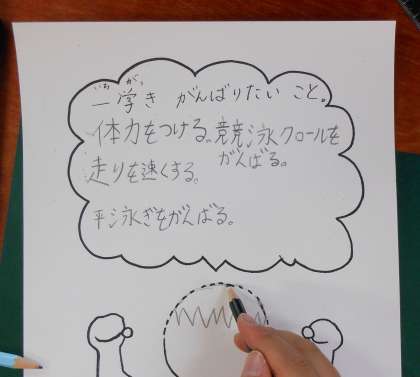 いち がっ
一学き がんばりたい こと。
体力をつける。競泳クロールを
がんばる。
走りを速くする。
平泳ぎをがんばる。